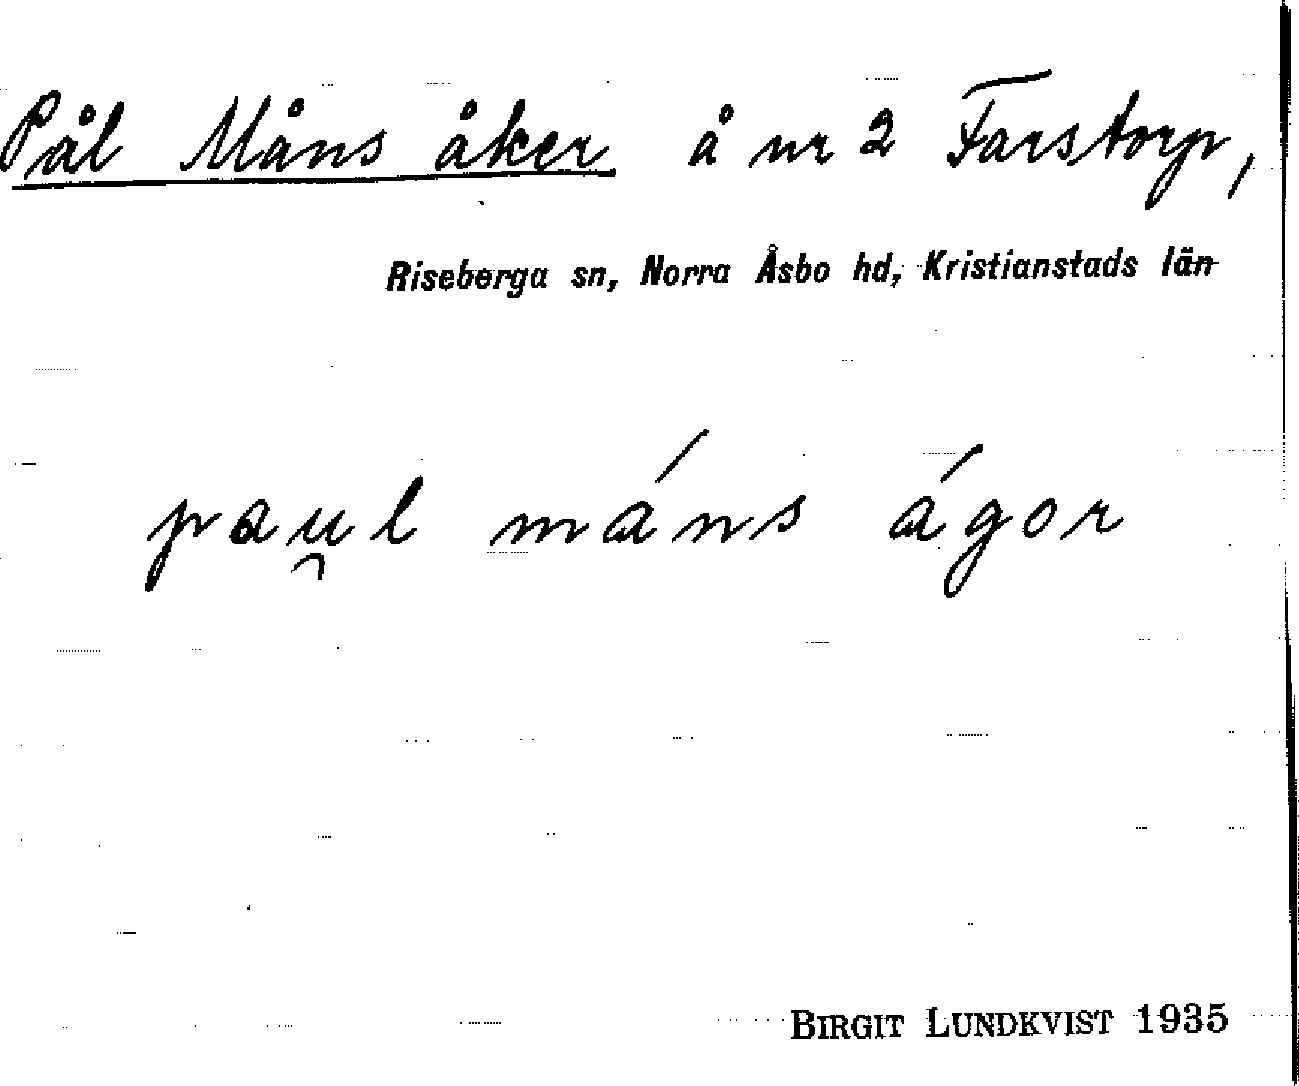 Pål Måns åker å nr 2 Farstorp,
Riseberga sn, Norra Åsbo hd, Kristianstads län
pau̯l máns ágor
BIRGIT LUNDKVIST 1935